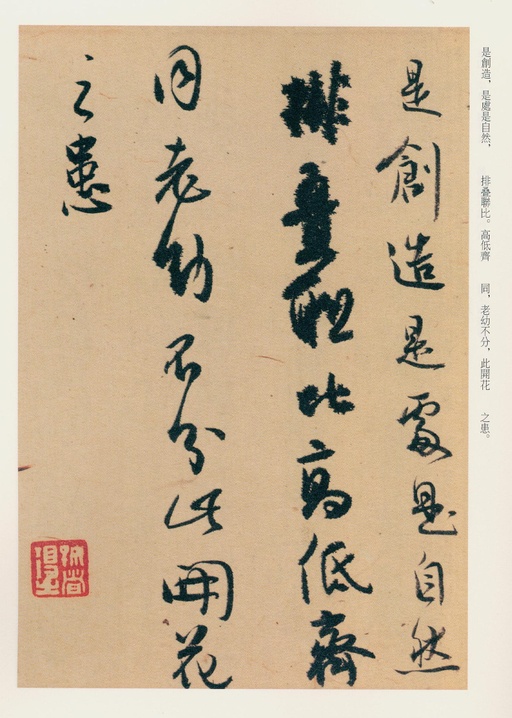 是創造，是處是自然，　排叠聯比。高低齊　同，老幼不分，此開花　之患。
是創造是處是自然
排疊聯比高低齊
同老幼不分此開花
之患